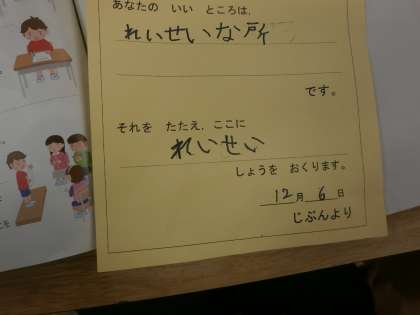 あなたの いい ところは、
れいせいな所
です。
それを たたえ、ここに
れいせい
しょうを おくります。
12月 6日
じぶんより